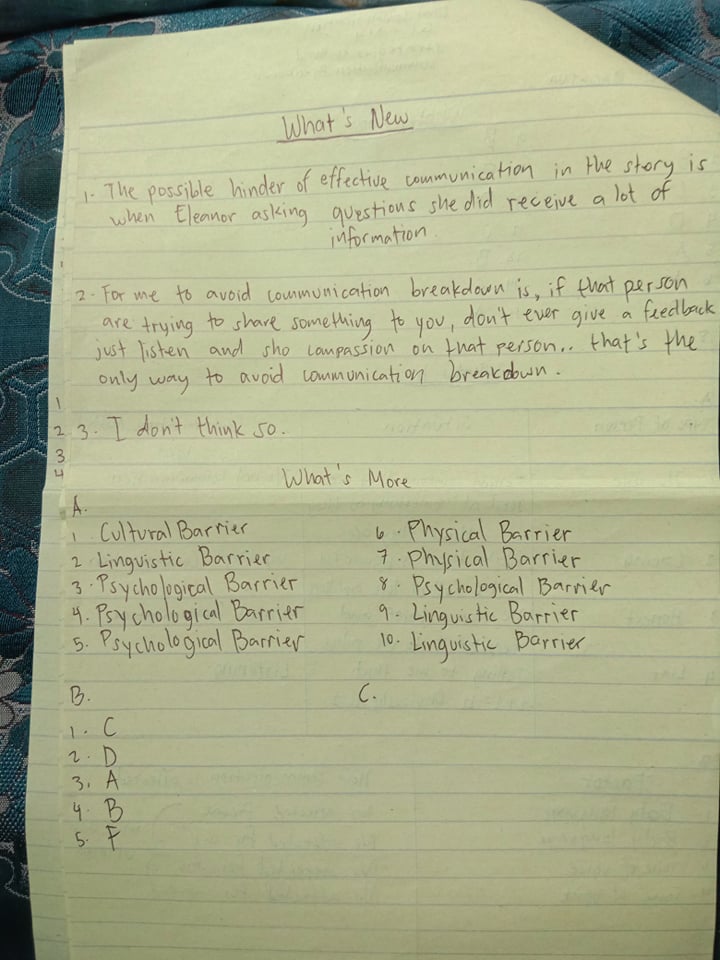 What's New
1. The possible hinder of effective communication in the story is
when Eleanor asking questions she did receive a lot of
information.
2. For me to avoid communication breakdown is, if that person
are trying to share something to you, don't ever give a feedback
just listen and sho compassion on that person.. that's the
only way to avoid communication breakdown.
1
2 3. I don't think so.
3
4 What's More
A.
1 Cultural Barrier 6. Physical Barrier
2 Linguistic Barrier 7. Physical Barrier
3. Psychological Barrier 8. Psychological Barrier
4. Psychological Barrier 9. Linguistic Barrier
5. Psychological Barrier 10. Linguistic Barrier
B. C.
1. C
2. D
3. A
4. B
5. F